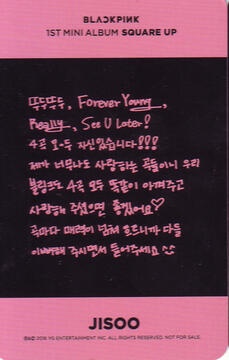 BLACKPINK
1ST MINI ALBUM SQUARE UP
뚜두뚜두, Forever Young,
Really, See U Later!
4곡 모두 자신있습니다!!!
제가 너무나도 사랑하는 곡들이니 우리
블링크도 4곡 모두 똑같이 아껴주고
사랑해 주셨으면 좋겠어요♡
곡마다 매력이 넘쳐 흐르니까 다들
이뻐해 주시면서 들어주세요 ^^
JISOO
©℗ 2018 YG ENTERTAINMENT INC. ALL RIGHTS RESERVED. NOT FOR SALE.